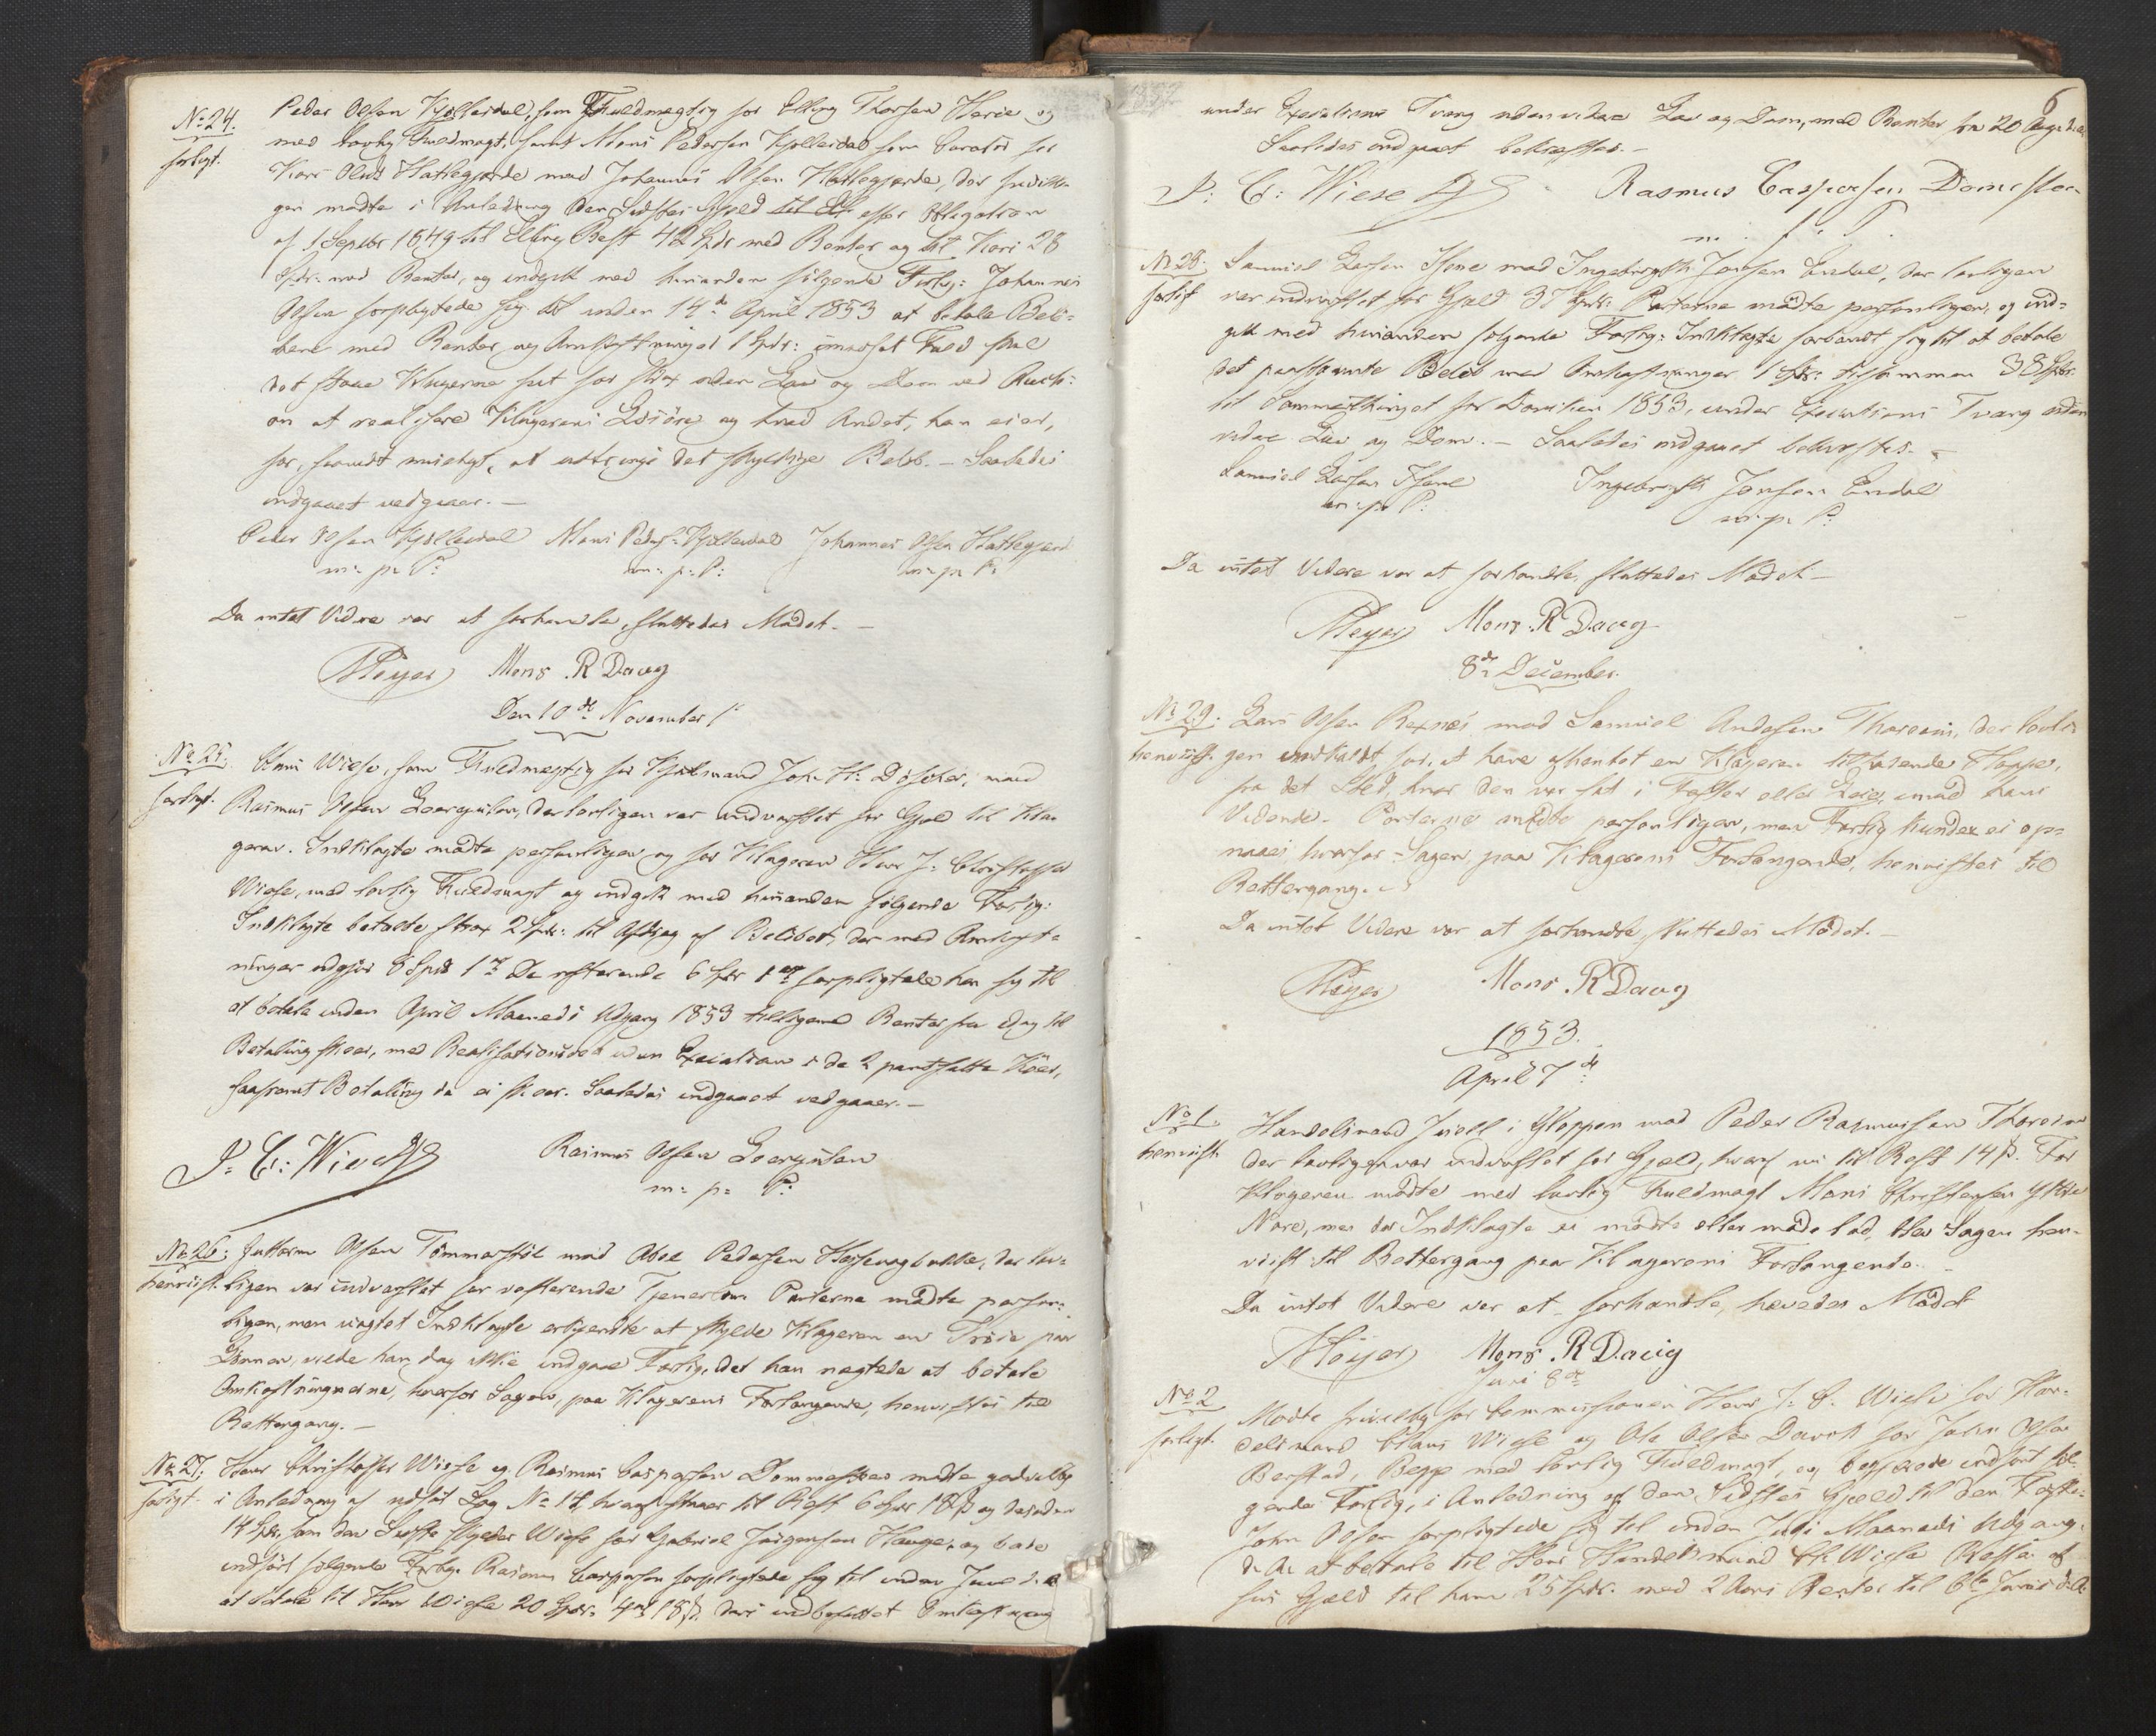 No 24.
forligt.
Peder Olsen Kjølleidal, som Fuldmægtig for Elling Thorsen Havie og
med lovlig Fuldmagt, samt Mons Pedersen Kjølleidal som Laværge for
Kari Olsd Hatlegjerde mod Johannes Olsen Hatlegjerde, der frivilli-
gen mødte i Anledning den Sidstes Gjeld efter Obligation
af 1 Septbr 1849 til Elling Rest 42 Spdr med Renter og til Kari 28
Spdr. med Renter, og indgik med hinanden følgende Forlig: Johannes
Olsen forpligtede sig til inden 14de April 1853 at betale Belö-
bene med Renter og Omkostninger 1 Spdr: imodsat Fald skal
det staae Klagerne frit for strax uden Lov og Dom ved Auch-
on at realisere Klagerens Løsøre og hvad Andet, han eier,
for, saavidt muligt, at inddrive det skyldige Beløb. - Saaledes
indgaaet vedgaaer. -
Peder Olsen Kjølleidal Mons Peders: Kjølleidal Johannes Olsen Hatlegjerde
m: p: P: m: p: P: m: p: P:
Da intet Videre var at forhandle, sluttedes Mødet. -
Meyer Mons . R Daug
Den 10de November
No 25.
forligt.
Hans Wiese, som Fuldmægtig for Kjøbmand Joh. H: Döscher, mod
Rasmus Olsen, der lovligen var indvarslet for Gjeld til Kla-
geren. Indklagte mødte personligen og for Klageren Herr J: Christopher
Wiese, med lovlig Fuldmagt og indgik med hinanden følgende Forlig:
Indklagte betalte strax 2 Spdr: til Afdrag af Beløbet, der med Omkost-
ninger udgjør 8 Spdr 1 ort De resterende 6 Spdr 1 ort forpligtede han sig til
at betale inden April Maaneds Udgang 1853 tilligemed Renter fra Idag til
Betaling skeer, med Realisationsret uden Execution i de 2 pantsatte Köer,
saafremt Betaling da ei skeer. Saaledes indgaaet vedgaaer. -
J: C: Wiese Rasmus Olsen
m: p: P:
No 26:
henviist.
Guttorm Olsen Tømmerstöl mod Abel Pedersen, der lov-
ligen var indvarslet for resterende Tjenerløn Parterne mødte person-
ligen, men uagtet Indklagte erkjendte at skylde Klageren en Trøie paa
Lønnen, vilde han dog ikke indgaae Forlig, det han nægtede at betale
Omkostningerne, hvorfor Sagen, paa Klagerens Forlangende, henvistes til
Rettergang. -
No 27:
forligt.
Herr Christopher Wiese og Rasmus Caspersen Dommesteen mødte godvillig
i Anledning af udsat Sag No 14, hvoraf staaer til Rest 6 Spdr og desuden
14 Spdr, som den Sidste skylder Wiese for Gabriel Jørgensen Hauge, og bade
indført følgende Forlig. Rasmus Caspersen forpligtede sig til inden Juni d. A.
at betale til Herr Wiese 20 Spdr. 4 ort 18 ß. deri indbefattet Omkostning
6
under Executions Tvang uden videre Lov og Dom, med Renter fra 20 Aug. d. A.
Saaledes indgaaet bekræftes. -
J: C: Wiese Rasmus Caspersen Domesteen
m. p. P.
No 28.
forligt
Samuel Larsen Hjeme mod Ingebrigth Jonsen Endal, der lovligen
var indvarslet for Gjeld 37 Spdr: Parterne mødte personligen, og ind-
gik med hinanden følgende Forlig: Indklagte forbandt sig til at betale
det paastævnte Beløb med Omkostninger 1 Spdr: tilsammen 38 Spdr.
til Sommerthinget for Daviken 1853, under Executions Tvang uden
videre Lov og Dom. - Saaledes indgaaet bekræftes. -
Samuel Larsen Hjeme Ingebrigth Jonsen Endal
m: p: P: m: p: P:
Da intet Videre var at forhandle, sluttedes Mødet. -
Meyer Mons . R Daug
8de December.
No 29:
henviist.
Lars Olsen Rexnes mod Samuel Andersen Thoreim, der lovli-
gen indkaldt, for at have afhentet en Klageren tilhørende Hoppe,
fra det Sted, hvor den var sat i Foster eller Leie, imod hans
Vidende. Parterne mødte personligen, men Forlig kunde ei op-
naaes, hvorfor Sagen, paa Klagerens Forlangende, henvistes til
Rettergang. -
Da intet Videre var at forhandle, sluttedes Mødet. -
Meyer Mons . R Daug
1853.
April 7de
No 1.
henviist.
Handelsmand Juell i Gloppen mod Peder Rasmussen Thoreim
der lovligen var indvarslet for Gjeld, hvoraf nu til Rest 14 ß. For
Klageren mødte med lovlig Fuldmagt Mons Christensen Ytre
Nore, men da Indklagte ei mødte eller møde lod, blev Sagen hen-
viist til Rettergang paa Klagerens Forlangende. -
Da intet Videre var at forhandle, hævedes Mødet
Meyer Mons . R Daug
Juni 8de
No 2
forligt.
Mødte frivillig for Commissionen Herr J: C. Wiese for Han-
delsmand Claus Wiese og Ole Olsen Davik for John Olsen
Berstad, Begge med lovlig Fuldmagt, og begjerede indført föl-
gende Forlig, i Anledning af den Sidstes Gjeld til den Første.
John Olsen forpligtede sig til inden Juli Maaneds Udgang
d. A. at betale til Herr Handelsmand Cl. Wiese Resten af
sin Gjeld til ham 25 Spdr. med 2 Aars Renter til 6te Juni d. A.